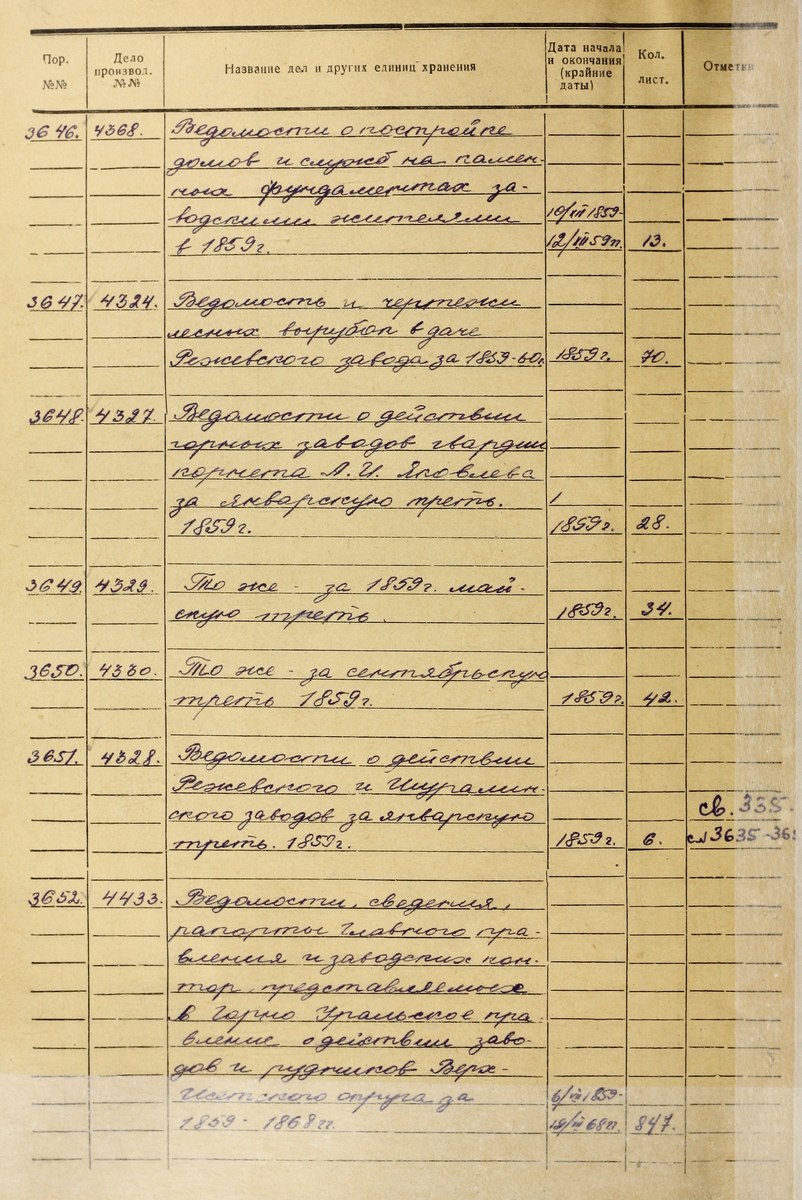 Пор. №№ Дело производ. №№ Название дел и других единиц хранения Дата начала и окончания (крайние даты) Кол. лист. Отметки
3646. 4368. Ведомости о постройке
домов и служб на камен-
ных фундаментах за-
водскими жителями 10/III 1859-
в 1859 г. 12/III 59 гг. 13.
3647. 4324. Ведомость и чертежи
лесных вырубок в даче
Режевского завода за 1859-60г. 1859 г. 70.
3648. 4327. Ведомости о действии
горных заводов гвардии
корнета А. И. Яковлева
за январскую треть.
1859 г. 1859 г. 28.
3649. 4329. То же - за 1859 г. май-
скую треть. 1859 г. 34.
3650. 4330. То же - за сентябрьскую
треть 1859 г. 1859 г. 42.
3651. 4328. Ведомости о действии
Режевского и Шуралин-
ского заводов за январскую св. 335.
треть. 1859 г. 1859 г. 6. 3635-36
3652. 4433. Ведомости, сведения,
рапорты Главного пра-
вления и заводских кон-
тор, представляемых
в Горно Уральское пра-
вление о действии заво-
дов и рудников Верх-
Исетского округа за 1859-
1859 - 1868 гг. 68 гг. 847.